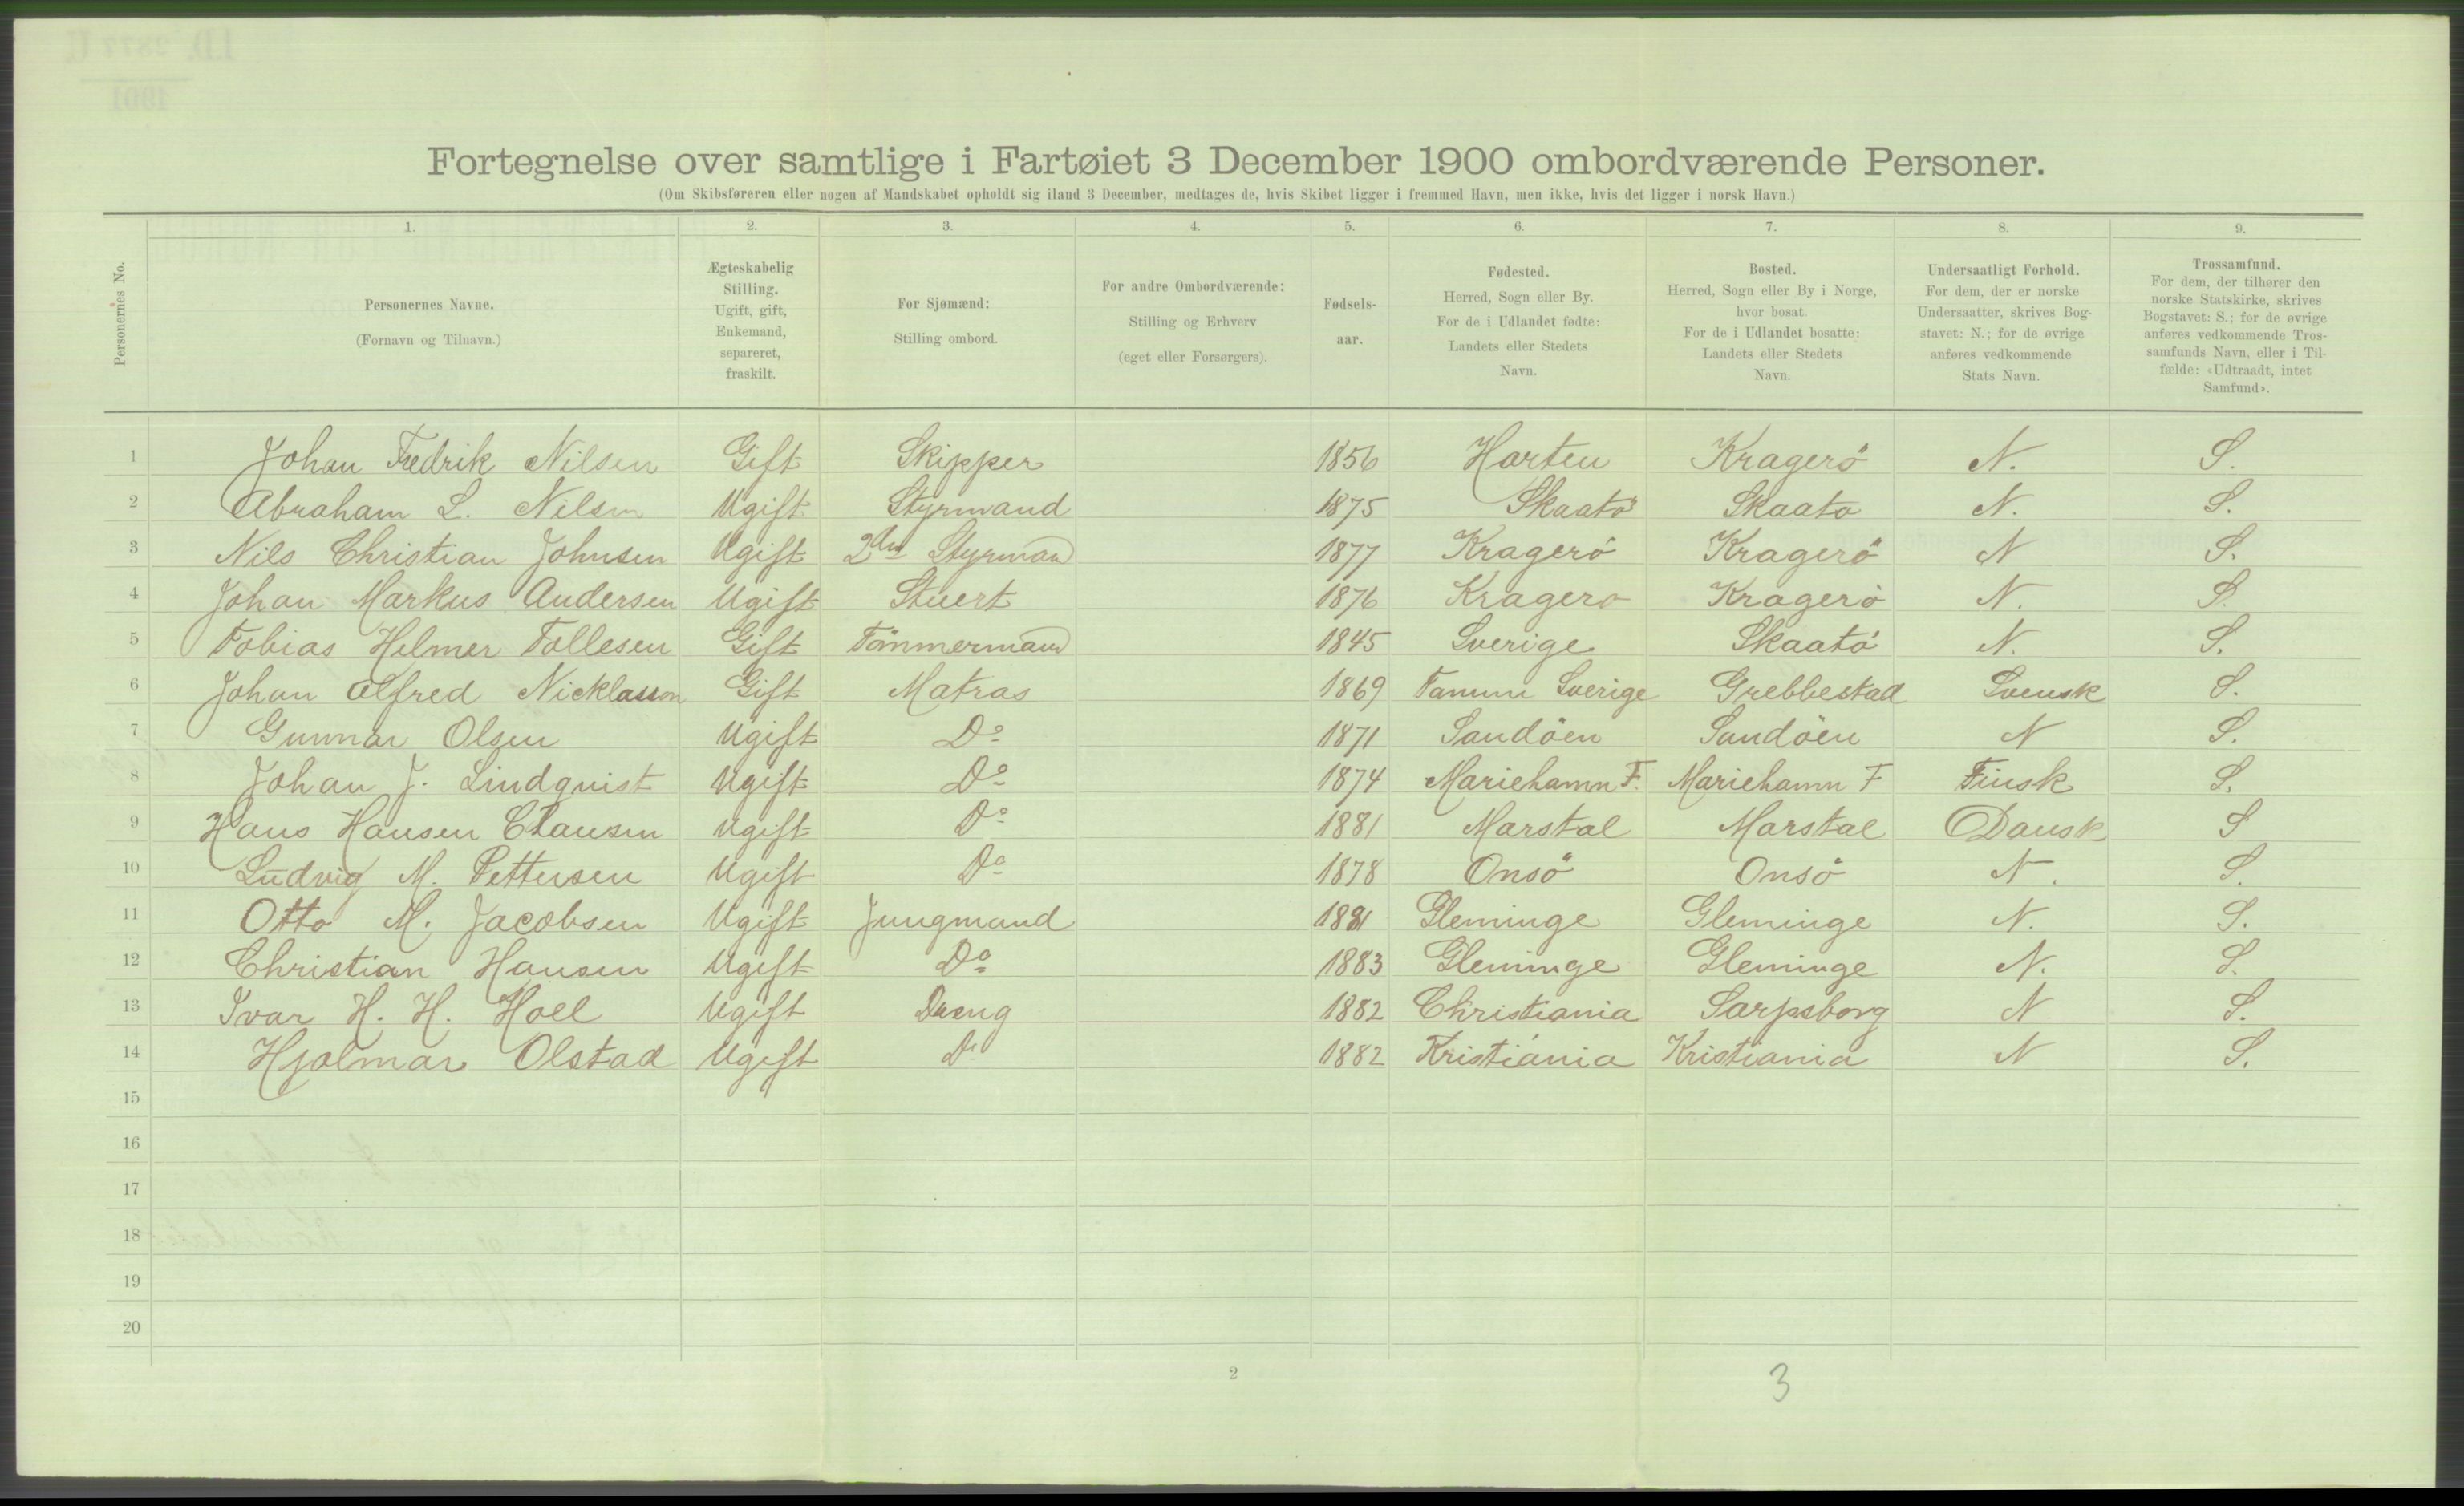 Fortegnelse over samtlige i Fartøiet 3 December 1900 ombordværende Personer.
(Om Skibsføreren eller nogen af Mandskabet opholdt sig iland 3 December, medtages de, hvis Skibet ligger i fremmed Havn, men ikke, hvis det ligger i norsk Havn.)
Personernes No.
1.
Personernes Navne.
(Fornavn og Tilnavn.)
2.
Ægteskabelig
Stilling.
Ugift, gift,
Enkemand,
separeret,
fraskilt.
3.
For Sjømænd:
Stilling ombord.
4.
For andre Ombordværende:
Stilling og Erhverv
(eget eller Forsørgers).
5.
Fødsels-
aar.
6.
Fødested.
Herred, Sogn eller By.
For de i Udlandet fødte:
Landets eller Stedets
Navn.
7.
Bosted.
Herred, Sogn eller By i Norge,
hvor bosat.
For de i Udlandet bosatte:
Landets eller Stedets
Navn.
8.
Undersaatligt Forhold.
For dem, der er norske
Undersaatter, skrives Bog-
stavet: N.; for de øvrige
anføres vedkommende
Stats Navn.
9.
Trossamfund.
For dem, der tilhører den
norske Statskirke, skrives
Bogstavet: S.; for de øvrige
anføres vedkommende Tros-
samfunds Navn, eller i Til-
fælde: «Udtraadt, intet
Samfund».
1 Johan Fredrik Nilsen Gift Skipper 1856 Harten Kragerö N. S.
2 Abraham L. Nilsen Ugift Styrmand 1875 Skaatö Skaato N. S.
3 Nils Christian Johnsen Ugift 2den Styrman 1877 Kragerö Kragerö N S.
4 Johan Markus Andersen Ugift Stuert 1876 Kragero Kragerö N. S.
5 Tobias Helmer Tollesen Gift Tömmermand 1845 Sverige Skaatö N. S.
6 Johan Alfred Nicklasson Gift Matros 1869 Tanum Sverige Grebbestad Svensk S.
7 Gunnar Olsen Ugift Do 1871 Sandöen Sandöen N S.
8 Johan J. Lindquist Ugift Do 1874 Mariehamn F. Mariehamn F Finsk S.
9 Hans Hansen Clausen Ugift Do 1881 Marstal Marstal Dansk S
10 Ludvig M. Pettersen Ugift Do 1878 Onsö Onsö N. S.
11 Otto M. Jacobsen Ugift Jungmand 1881 Gleminge Gleminge N. S.
12 Christian Hansen Ugift Do 1883 Gleminge Gleminge N. S.
13 Ivar H. H. Hoel Ugift Dreng 1882 Christiania Sarpsborg N S.
14 Hjalmar Olstad Ugift Do 1882 Kristiania Kristiania N S.
15
16
17
18
19
20
2
3